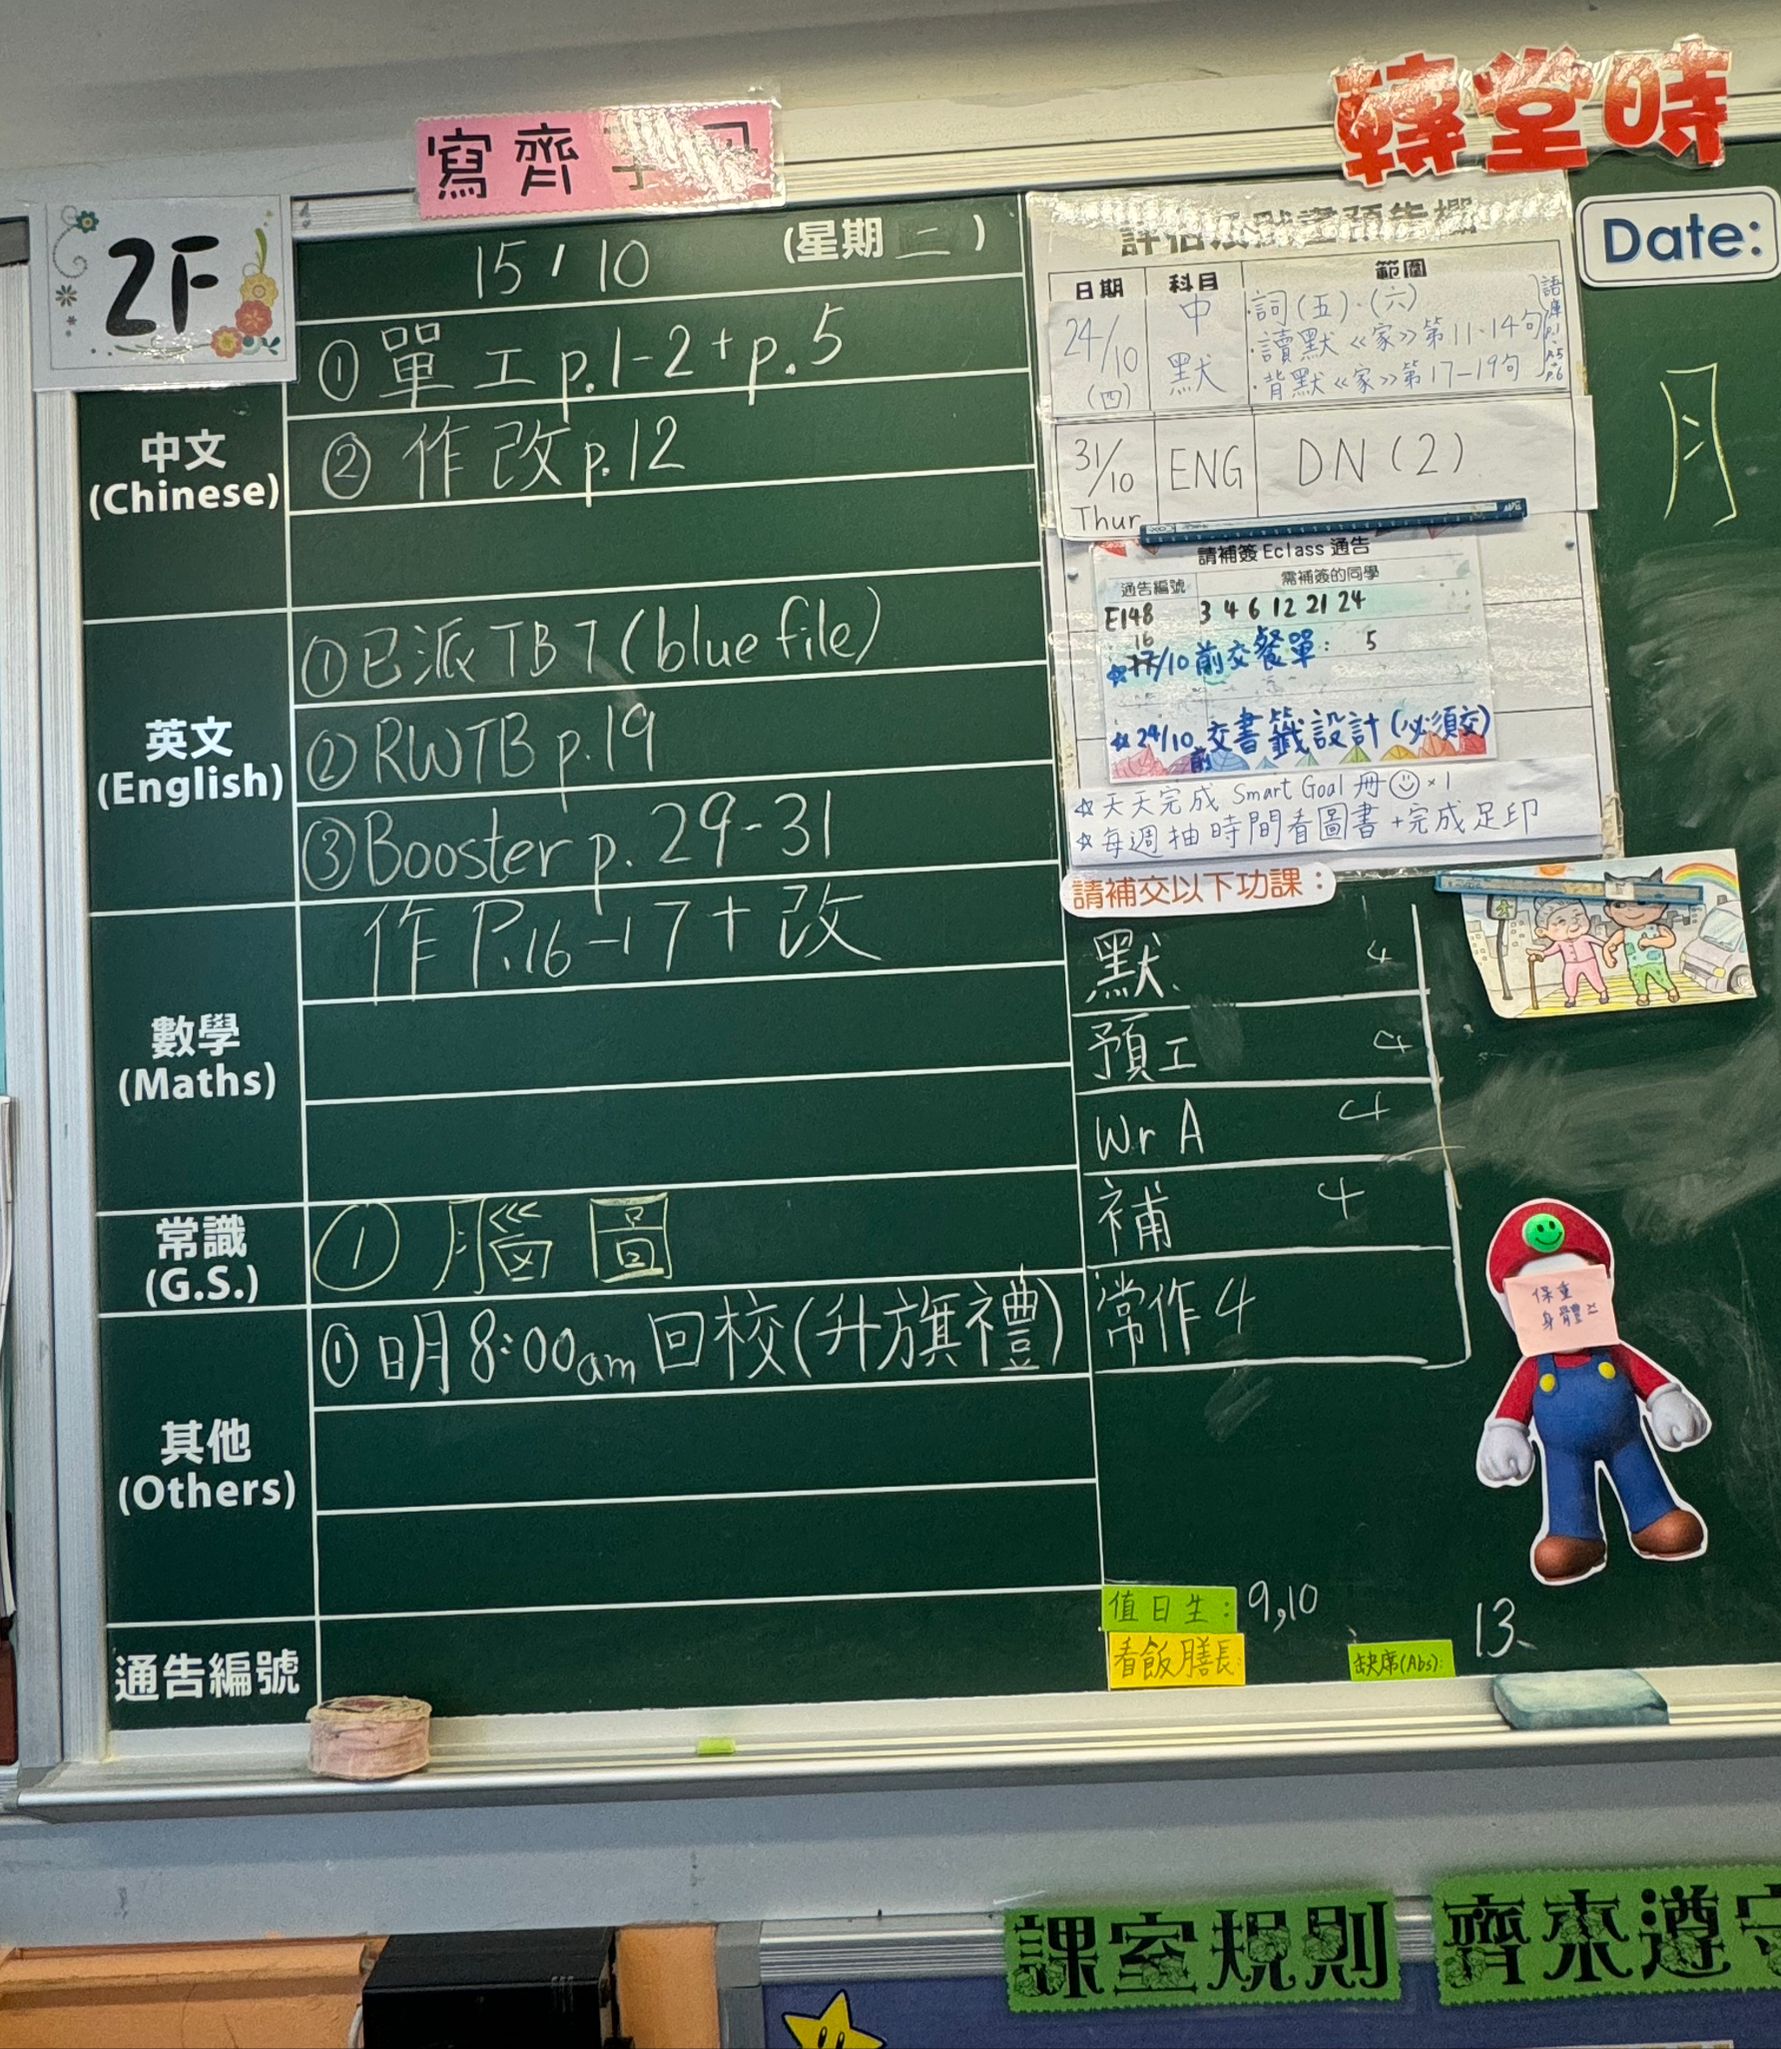 轉堂時
寫齊手冊
2F
15 / 10 (星期二)
Date:
中文
(Chinese)
① 單工 p.1-2 + p.5
② 作改 p.12
英文
(English)
① 已派 TB 7 (blue file)
② RWTB p.19
③ Booster p. 29-31
數學
(Maths)
作 P.16-17 + 改
常識
(G.S.)
① 腦圖
其他
(Others)
① 明 8:00am 回校(升旗禮)
通告編號
評估及默書預告欄
日期 科目 範圍
24/10 (四) 中默
·詞(五)·(六)
·讀默《家》第11-14句
·背默《家》第17-19句
31/10 Thur ENG DN (2)
請補簽 Eclass 通告
通告編號 需補簽的同學
E148 3 4 6 12 21 24
16
☆17/10 前交餐單: 5
☆24/10前 交書籤設計(必須交)
☆天天完成 Smart Goal 冊☺×1
☆每週抽時間看圖書+完成足印
請補交以下功課:
默 4
預工 4
Wr A 4
補 4
常作 4
月
保重
身體
值日生: 9,10
看飯膳長:
缺席(Abs): 13
課室規則
齊來遵守